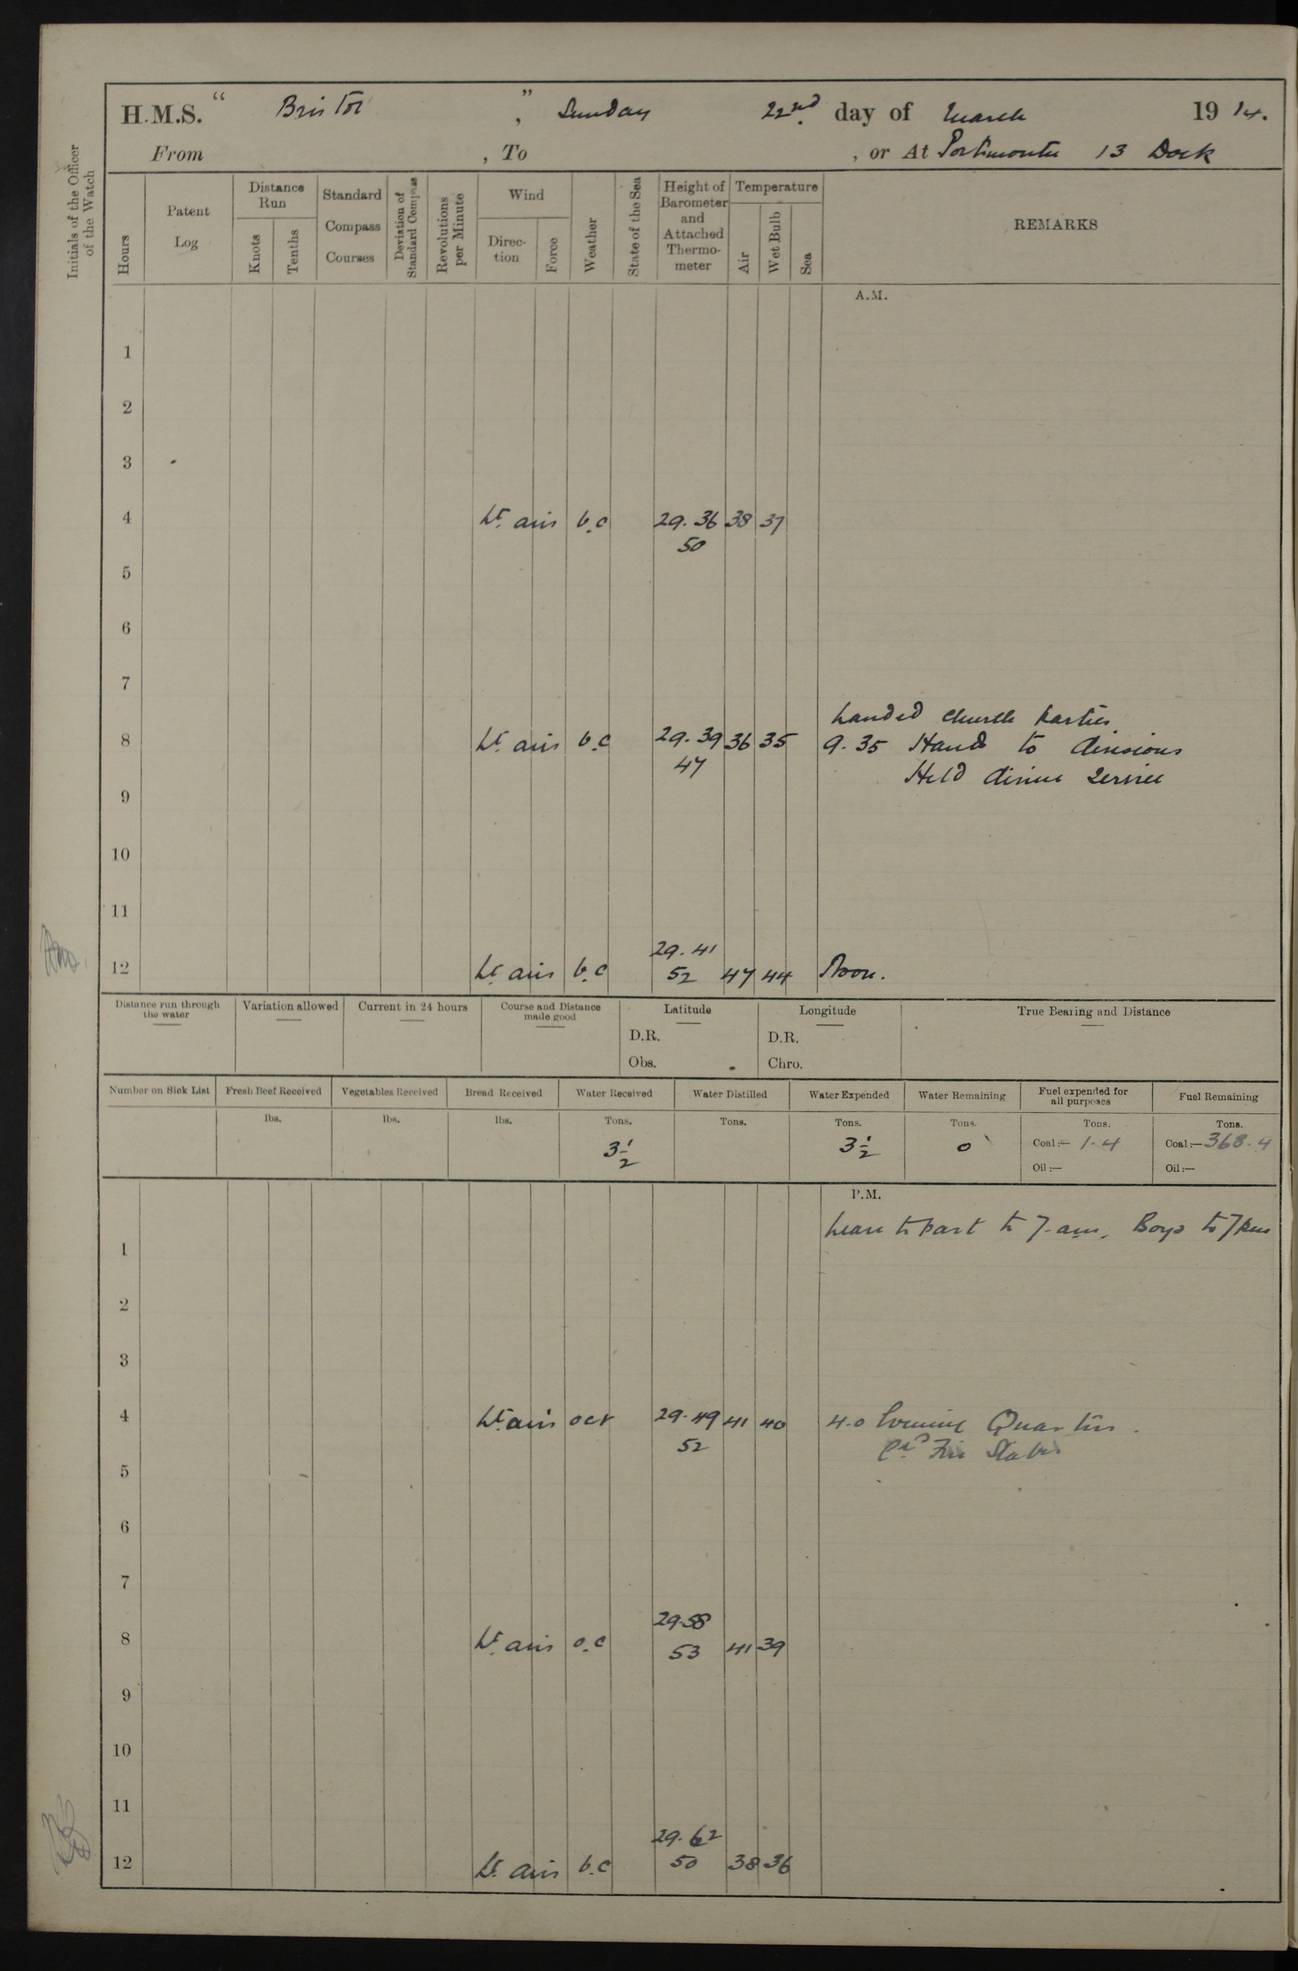 H.M.S. “ Bristol ” , Sunday 22nd day of March 19 14.
From , To , or At Portsmouth 13 Dock
Initials of the Officer of the Watch
Hours
Patent Log
Distance Run
Knots
Tenths
Standard Compass Courses
Deviation of Standard Compass
Revolutions per Minute
Wind
Direction
Force
Weather
State of the Sea
Height of Barometer and Attached Thermometer
Temperature
Air
Wet Bulb
Sea
REMARKS
A.M.
1
2
3
4 Lt. airs b.c 29.36 38 37
50
5
6
7
Landed church parties
8 Lt. airs b.c 29.39 36 35 9.35 Hands to divisions
47 Held divine service
9
10
11
29.41
12 Lt. airs b.c 52 47 44 Noon.
Distance run through the water
Variation allowed
Current in 24 hours
Course and Distance made good
Latitude
D.R.
Obs.
Longitude
D.R.
Chro.
True Bearing and Distance
Number on Sick List
Fresh Beef Received
lbs.
Vegetables Received
lbs.
Bread Received
lbs.
Water Received
Tons.
3½
Water Distilled
Tons.
Water Expended
Tons.
3½
Water Remaining
Tons.
0
Fuel expended for all purposes
Tons.
Coal:— 1.4
Oil:—
Fuel Remaining
Tons.
Coal:— 368.4
Oil:—
P.M.
Leave to part to 7.am. Boys to 7pm
1
2
3
4 Lt. airs ocr 29.49 41 40 4.0 Evening Quarters.
52 Exd. Fire Stations
5
6
7
29.58
8 Lt. airs o.c 53 41 39
9
10
11
29.62
12 Lt. airs b.c 50 38 36